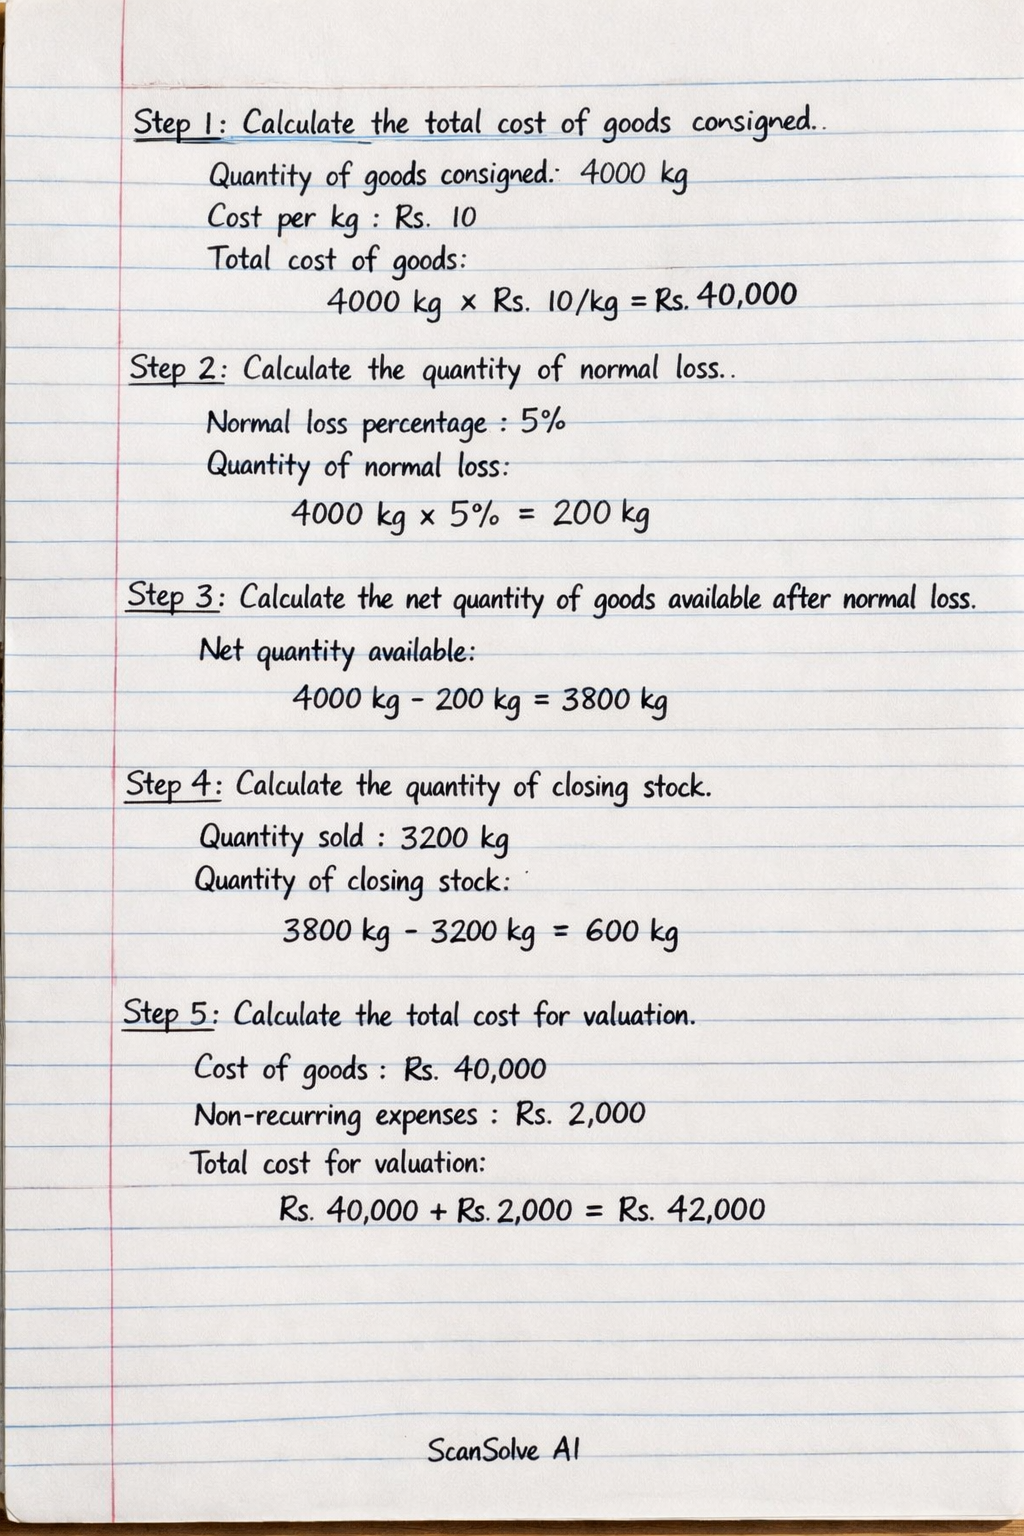 Step 1: Calculate the total cost of goods consigned..
Quantity of goods consigned: 4000 kg
Cost per kg : Rs. 10
Total cost of goods:
4000 kg × Rs. 10/kg = Rs. 40,000
Step 2: Calculate the quantity of normal loss..
Normal loss percentage : 5%
Quantity of normal loss:
4000 kg × 5% = 200 kg
Step 3: Calculate the net quantity of goods available after normal loss.
Net quantity available:
4000 kg - 200 kg = 3800 kg
Step 4: Calculate the quantity of closing stock.
Quantity sold : 3200 kg
Quantity of closing stock:
3800 kg - 3200 kg = 600 kg
Step 5: Calculate the total cost for valuation.
Cost of goods : Rs. 40,000
Non-recurring expenses : Rs. 2,000
Total cost for valuation:
Rs. 40,000 + Rs. 2,000 = Rs. 42,000
ScanSolve AI